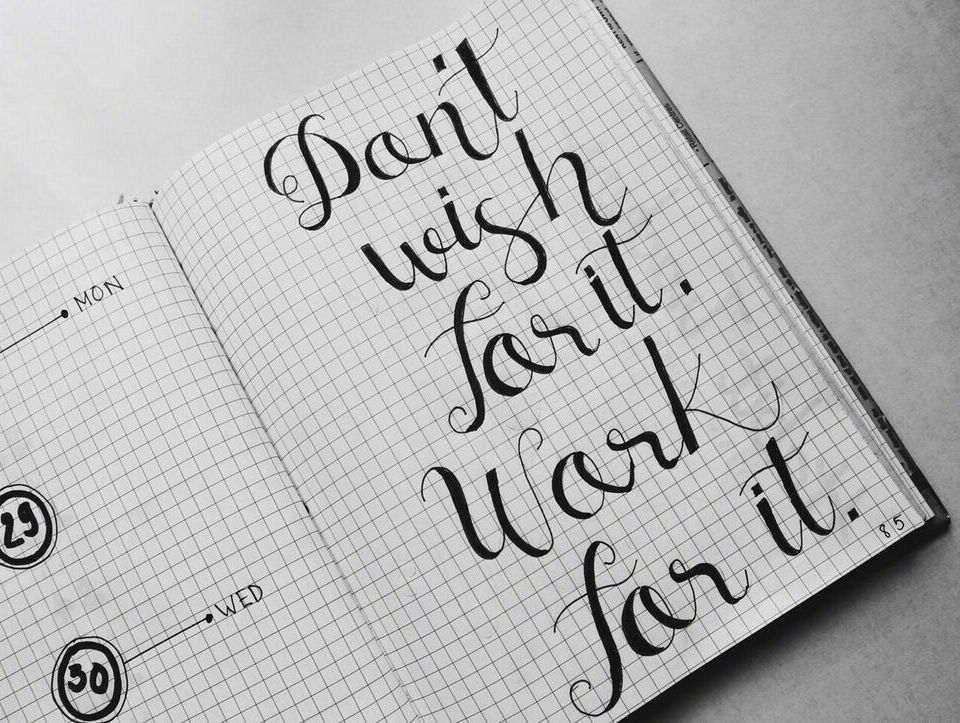 MON
29
WED
30
Don't
wish
for it.
Work
for it.
85